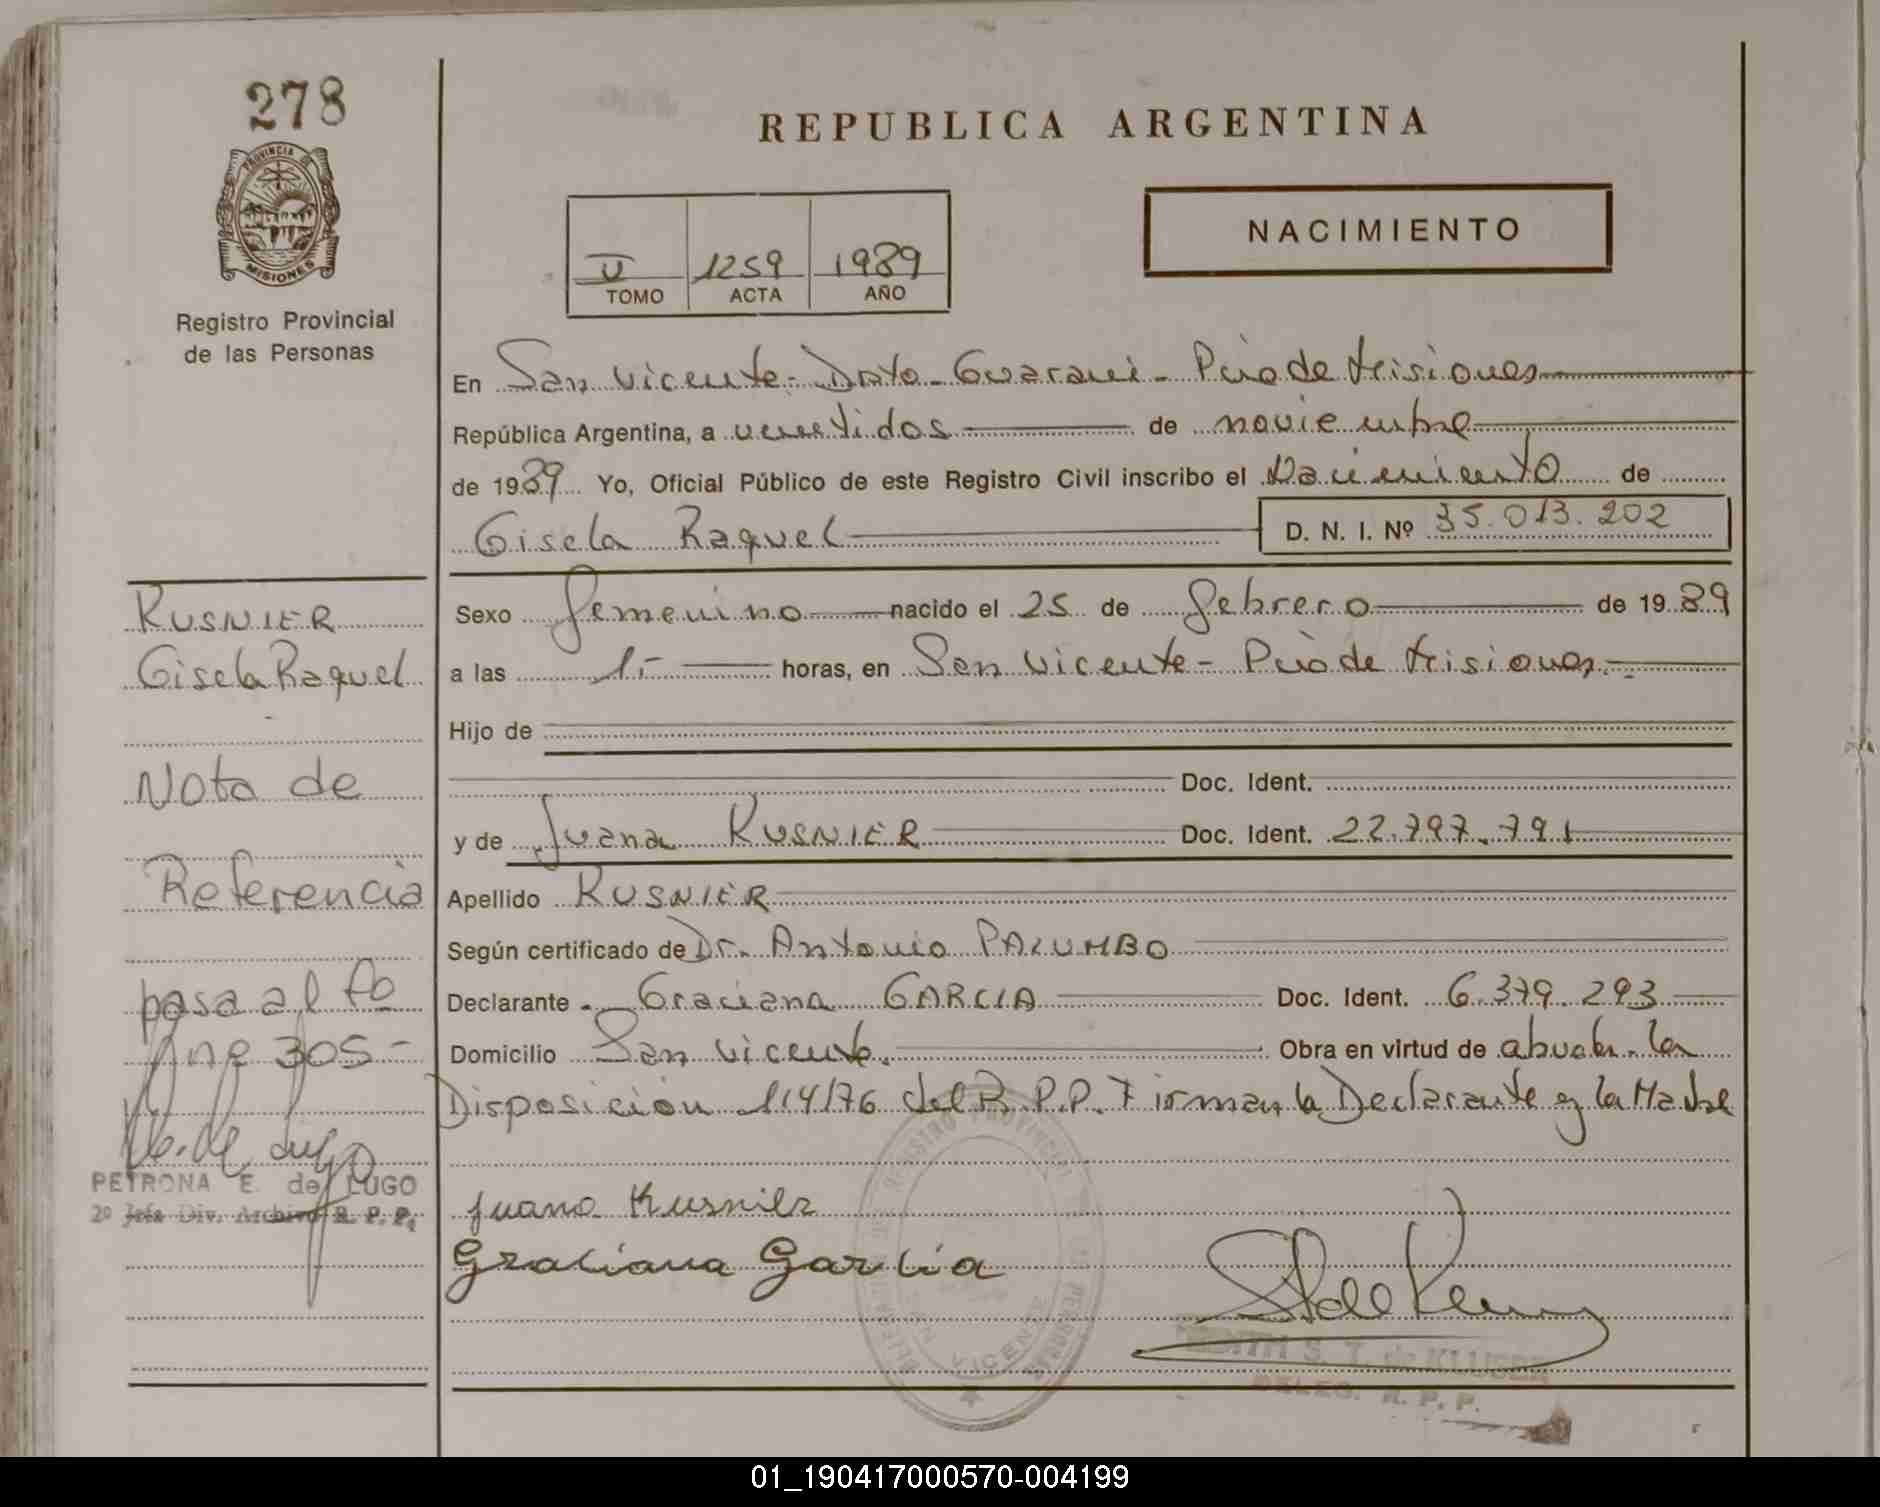 278
PROVINCIA DE
MISIONES
Registro Provincial
de las Personas
REPUBLICA ARGENTINA
V 1259 1989
TOMO ACTA AÑO
NACIMIENTO
En San Vicente - Dpto - Guarani - Pcia de Misiones
República Argentina, a veintidos de noviembre
de 1989 Yo, Oficial Público de este Registro Civil inscribo el Nacimiento de
Gisela Raquel D. N. I. Nº 35.013.202
KUSNIER
Gisela Raquel
Nota de
Referencia
pasa al fo
305 -
PETRONA E. de LUGO
2º Jefa Div. Archivo R. P. P.
Sexo femenino nacido el 25 de febrero de 1989
a las 15 horas, en San Vicente - Pcia de Misiones.-
Hijo de
Doc. Ident.
y de Juana KUSNIER Doc. Ident. 22.797.791
Apellido KUSNIER
Según certificado de Dr. Antonio PALUMBO
Declarante Graciana GARCIA Doc. Ident. 6.379.293
Domicilio San Vicente. Obra en virtud de abuela - la
Disposición 114/76 del R.P.P. Firman la Declarante y la Madre
Juana Kusnier
Graciana Garcia
REGISTRO PROVINCIAL DE LAS PERSONAS
VICENTE
EDITH S. T. de KLUGER
DELEG. R. P. P.
01_190417000570-004199